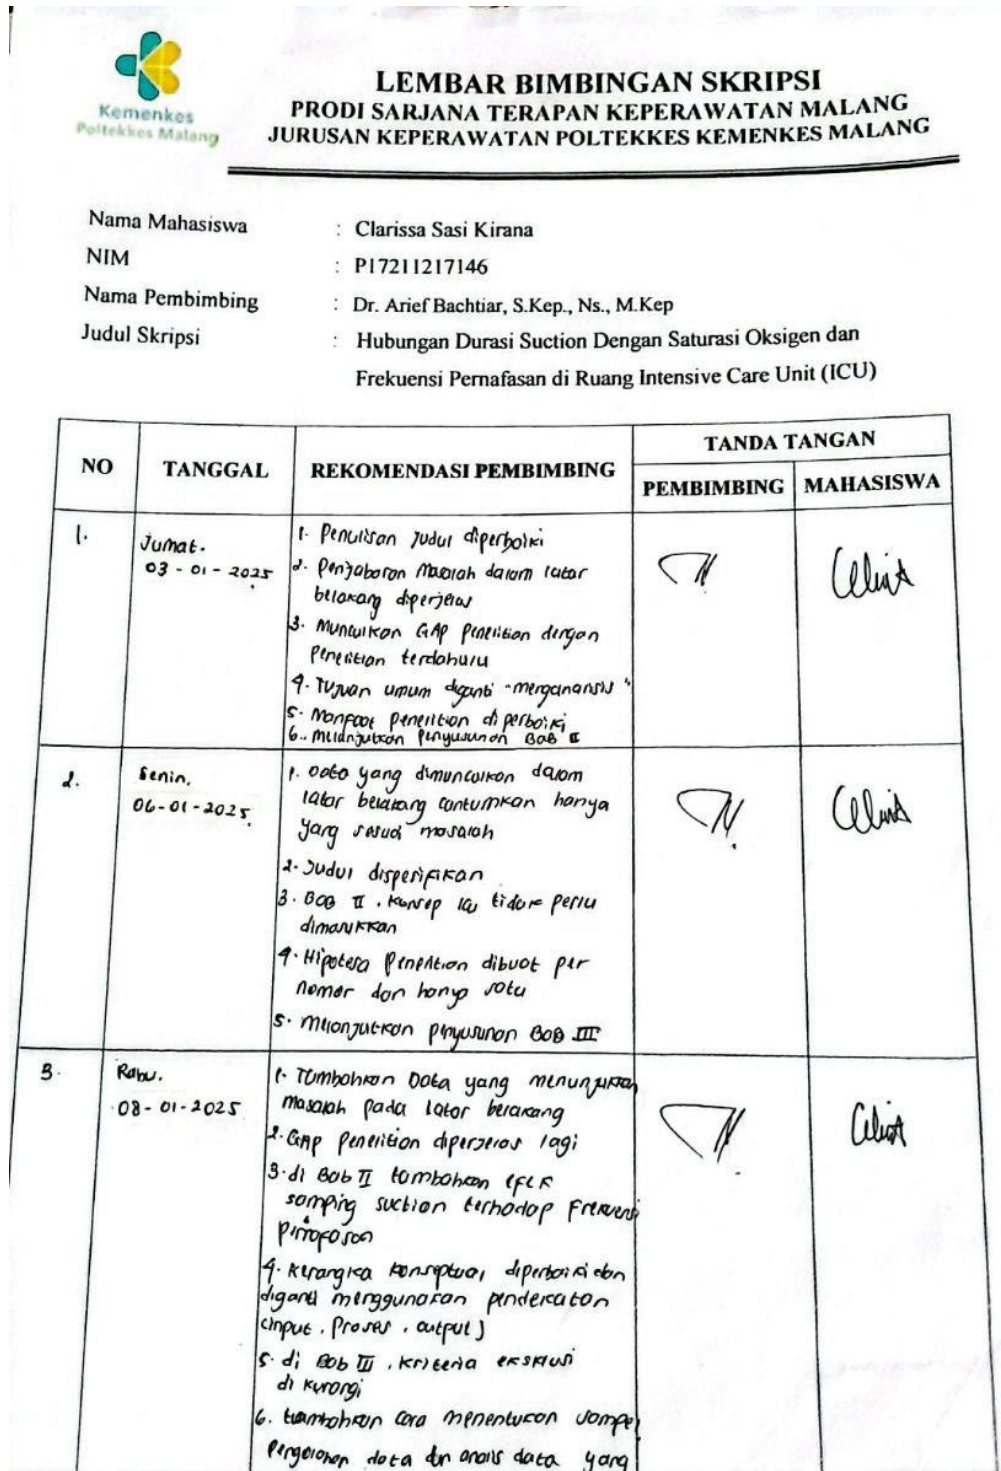 Kemenkes
Poltekkes Malang
LEMBAR BIMBINGAN SKRIPSI
PRODI SARJANA TERAPAN KEPERAWATAN MALANG
JURUSAN KEPERAWATAN POLTEKKES KEMENKES MALANG
Nama Mahasiswa : Clarissa Sasi Kirana
NIM : P17211217146
Nama Pembimbing : Dr. Arief Bachtiar, S.Kep., Ns., M.Kep
Judul Skripsi : Hubungan Durasi Suction Dengan Saturasi Oksigen dan
Frekuensi Pernafasan di Ruang Intensive Care Unit (ICU)
NO TANGGAL REKOMENDASI PEMBIMBING TANDA TANGAN
PEMBIMBING MAHASISWA
1. Jumat.
03-01-2025
1. Penulisan Judul diperbaiki
2. Penjabaran Masalah dalam latar
belakang diperjelas
3. Munculkan GAP Penelitian dengan
Penelitian terdahulu
4. Tujuan umum diganti "menganalisis"
5. Manfaat penelitian diperbaiki
6. Melanjutkan penyusunan BAB II
2. Senin,
06-01-2025
1. Data yang dimunculkan dalam
latar belakang cantumkan hanya
yang sesuai masalah
2. Judul dispesifikan
3. BAB II, Konsep ICU tidak perlu
dimasukkan
4. Hipotesa Penelitian dibuat per
nomer dan hanya satu
5. Melanjutkan penyusunan BAB III
3. Rabu,
08-01-2025
1. Tambahkan Data yang menunjukkan
masalah pada latar belakang
2. GAP Penelitian diperjelas lagi
3. di Bab II tambahkan efek
samping suction terhadap Frekuensi
4. Kerangka Konseptual diperbaiki dan
diganti menggunakan pendekatan
(input, Proses, output)
5. di Bab III, Kriteria eksklusi
di kurangi
6. tambahkan cara menentukan sampel
Pengolahan data dan analis data yang